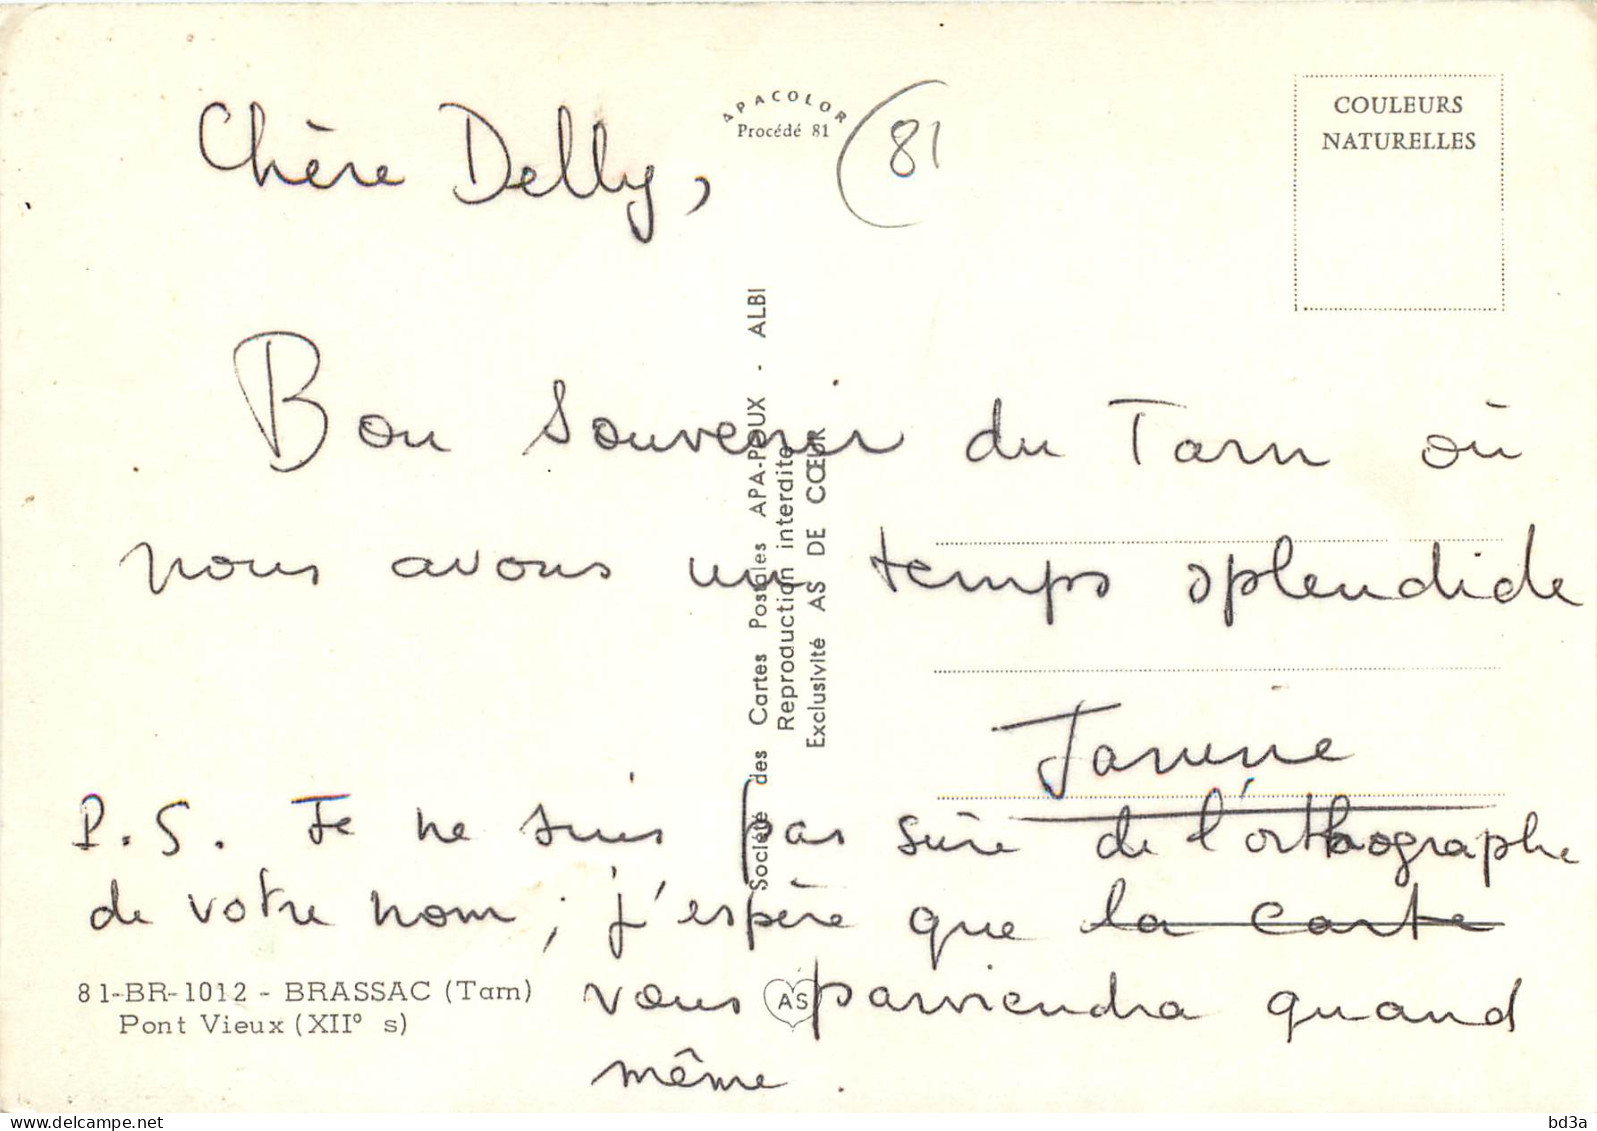 APACOLOR
Procédé 81
(81
COULEURS
NATURELLES
Chère Delly,
Bon souvenir du Tarn où
nous avons un temps splendide
Janine
P.S. Je ne suis pas sûre de l'orthographe
de votre nom ; j'espère que la carte
vous parviendra quand
même.
Société des Cartes Postales APA-POUX - ALBI
Reproduction interdite
Exclusivité AS DE CŒUR
81-BR-1012 - BRASSAC (Tarn)
Pont Vieux (XII° s)
AS
bd3a